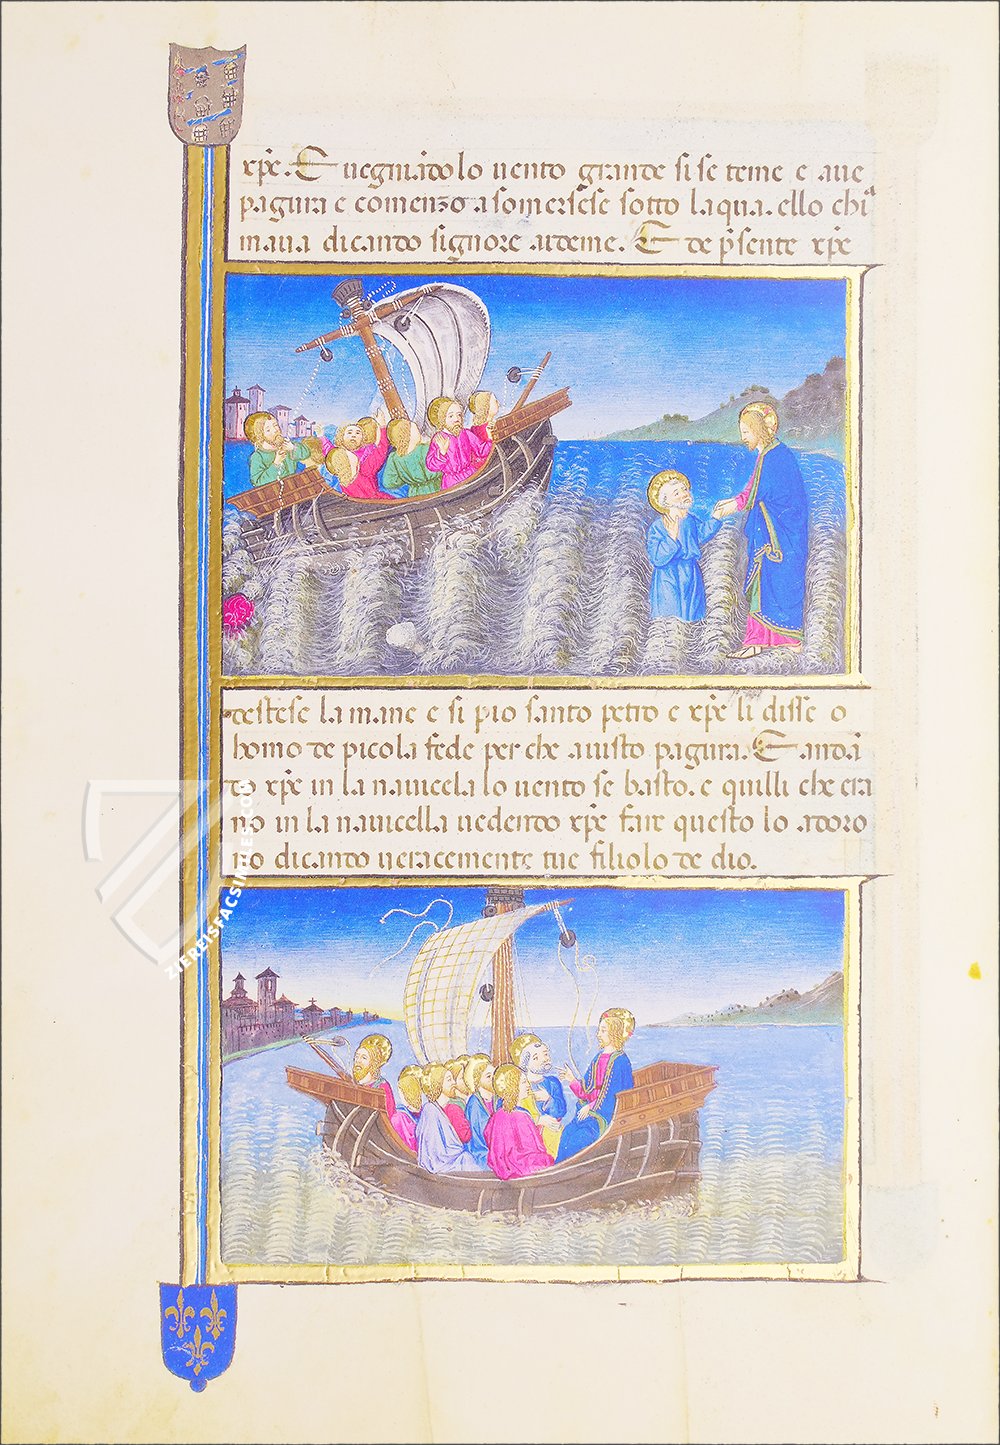 xp̄e. E uegniādo lo uento grande si se teme e aue
pagura e comenzo a somersese sotto laqua. ello chi
maua dicando signore aideme. E de p̄sente xp̄e
destese la mane e si pio santo petro e xp̄e li disse o
homo de picola fede per che auisto pagura. E andā
do xp̄e in la nauicela lo uento se basto. e quilli che era
no in la nauicella uedendo xp̄e fair questo lo adoro
no dicando ueracemente tue filiolo de dio.
ZIEREISFACSIMILES.COM